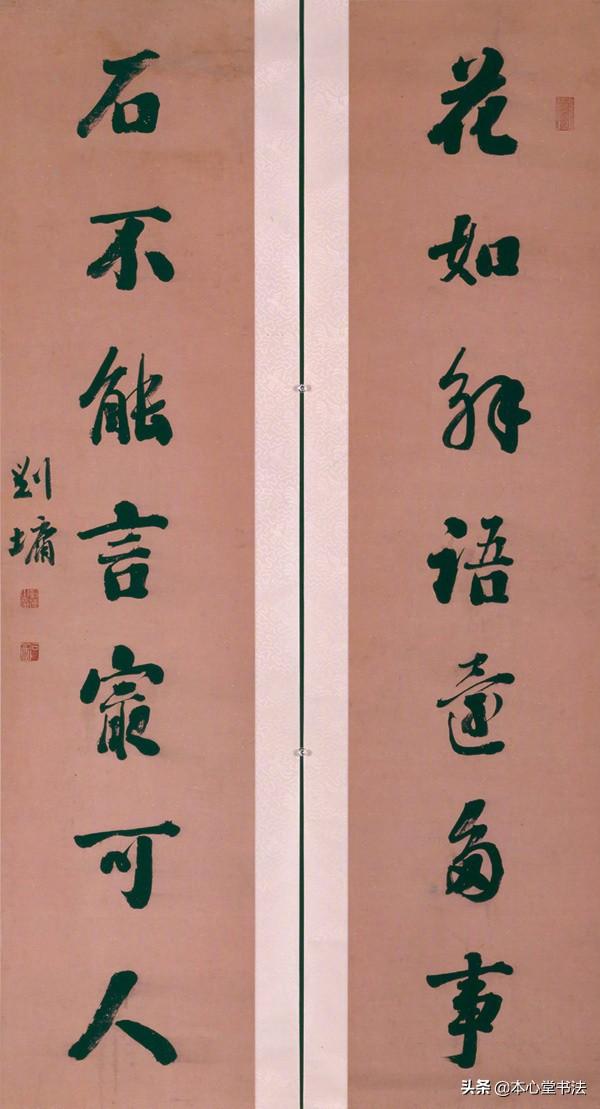 花如解語還多事
石不能言㝡可人
劉墉
头条 @本心堂书法